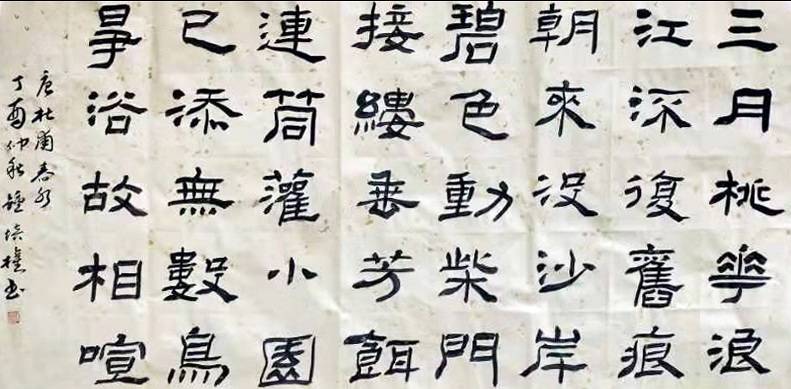 三月桃華浪
江深復舊痕
朝來沒沙岸
碧色動柴門
接縷垂芳餌
連筒灌小園
已添無數鳥
爭浴故相喧
唐杜甫春水
丁酉仲秋鍾培權書